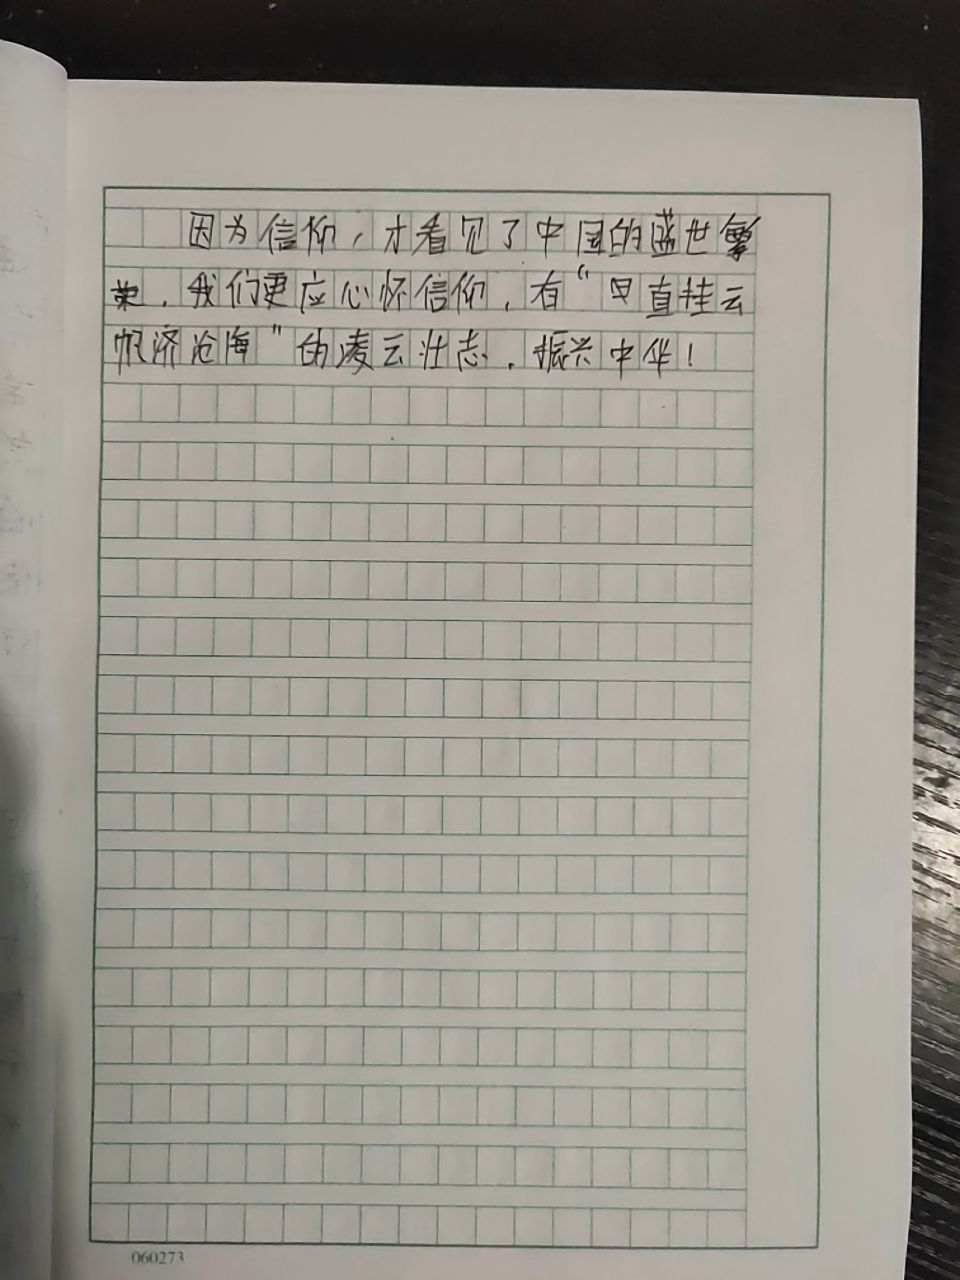 因为信仰，才看见了中国的盛世繁
荣，我们更应心怀信仰，有“曰直挂云
帆济沧海”的凌云壮志，振兴中华！
060273